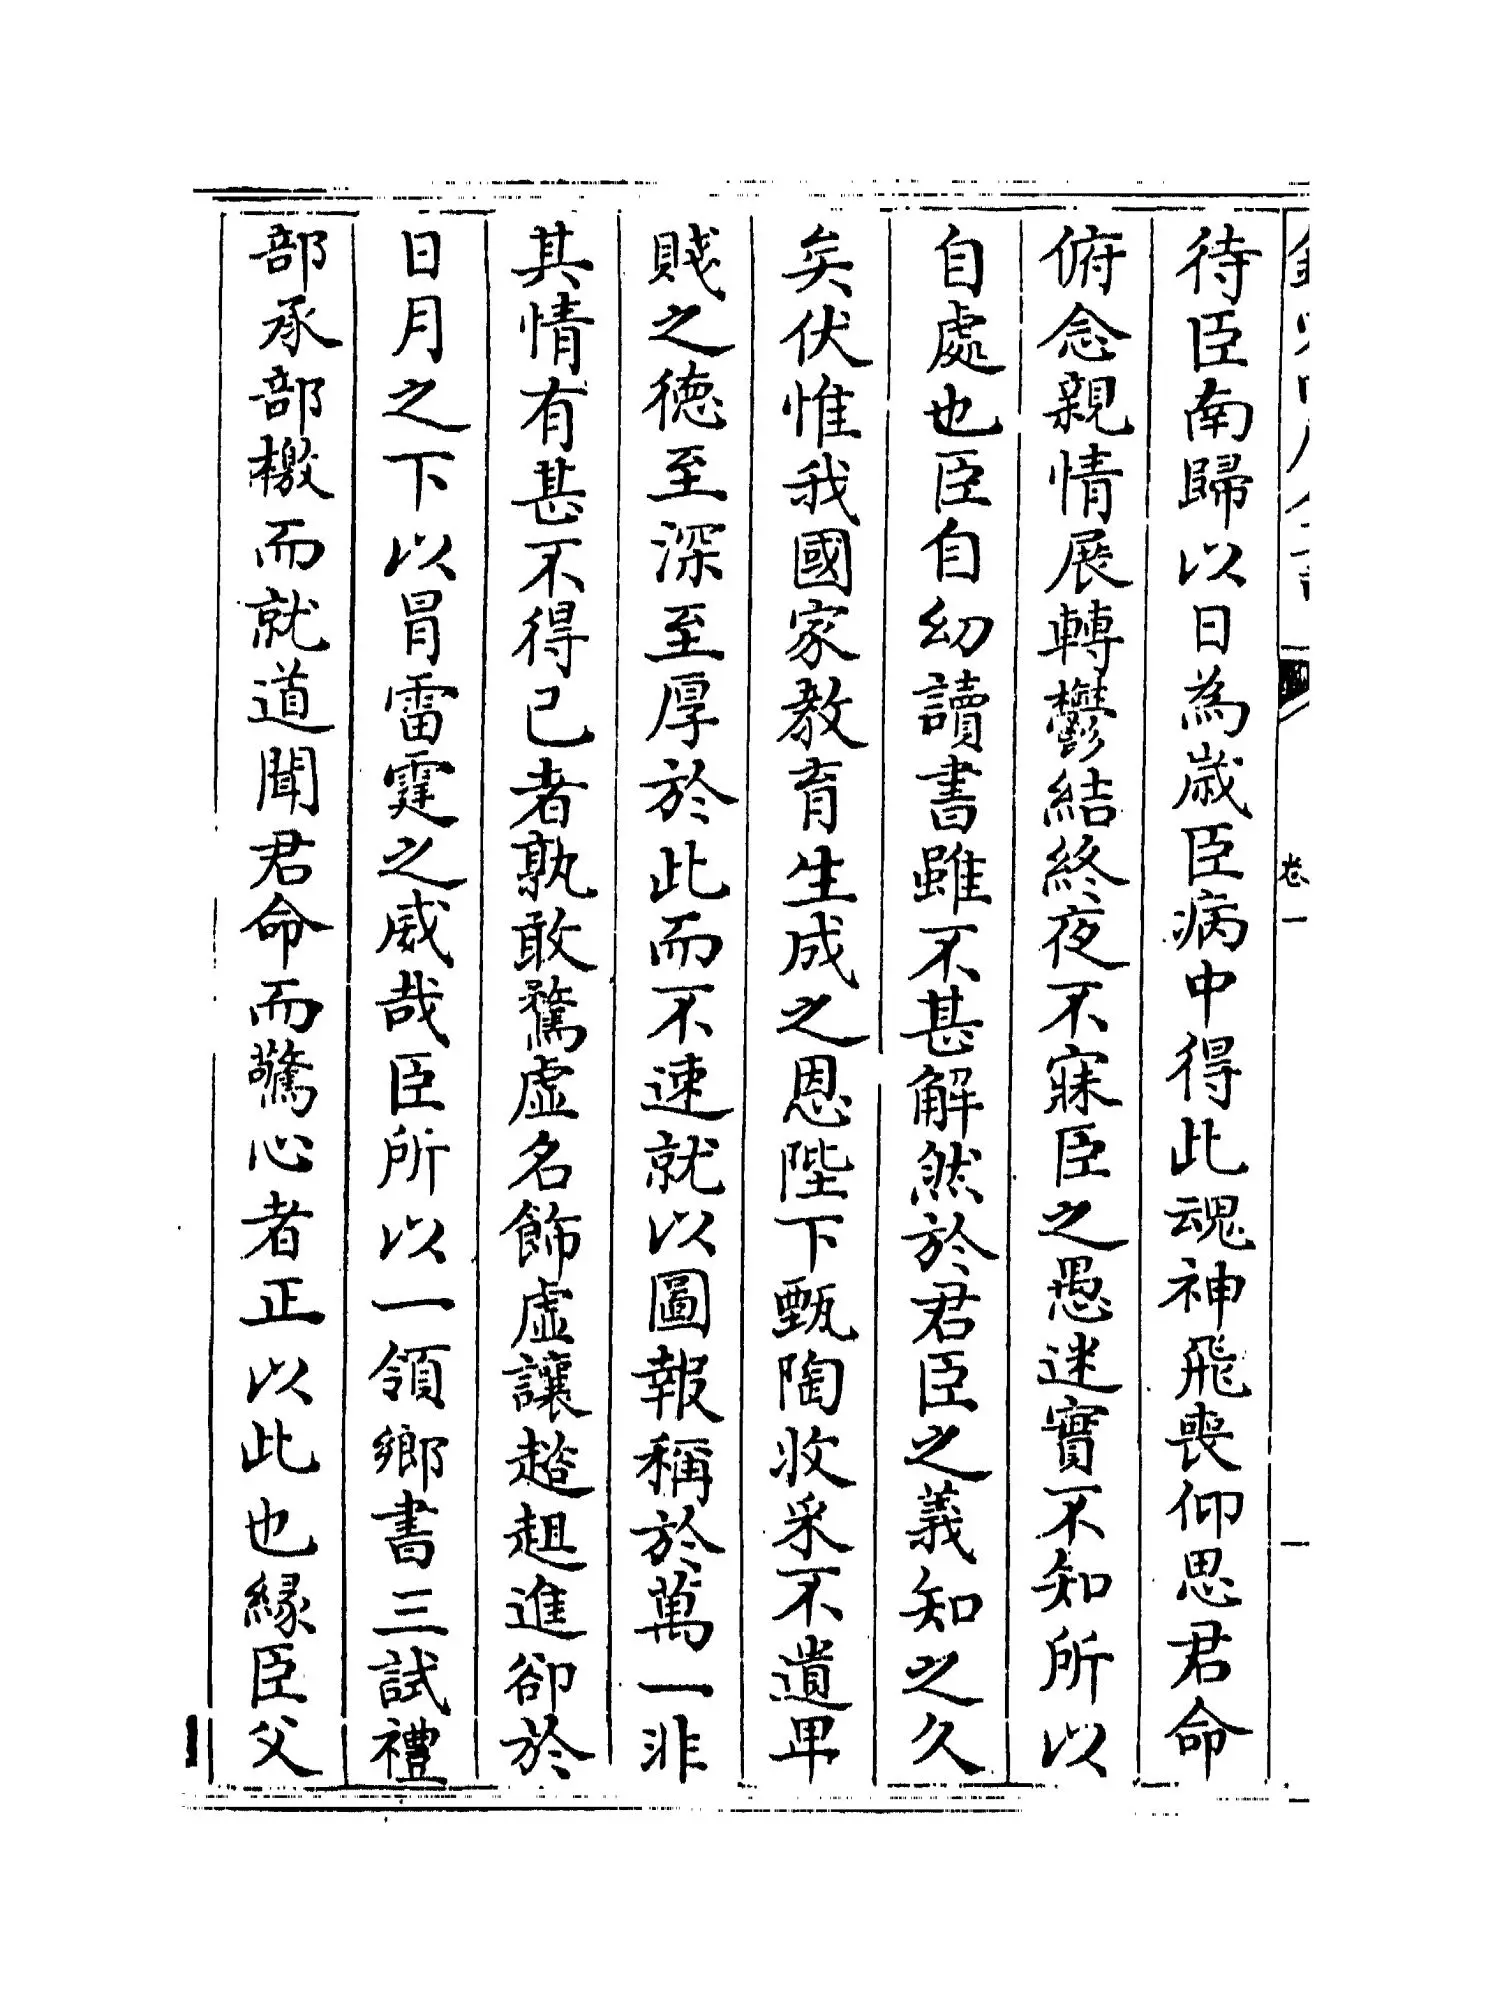 待臣南歸以日為歳臣病中得此魂神飛喪仰思君命
俯念親情展轉鬱結終夜不寐臣之愚迷實不知所以
自處也臣自幼讀書雖不甚解然於君臣之義知之久
矣伏惟我國家教育生成之恩陛下甄陶收采不遺卑
賤之徳至深至厚於此而不速就以圖報稱於萬一非
其情有甚不得已者孰敢騖虚名飾虚讓趦趄進卻於
日月之下以冐雷霆之威哉臣所以一領鄉書三試禮
部承部檄而就道聞君命而驚心者正以此也緣臣父
卷一